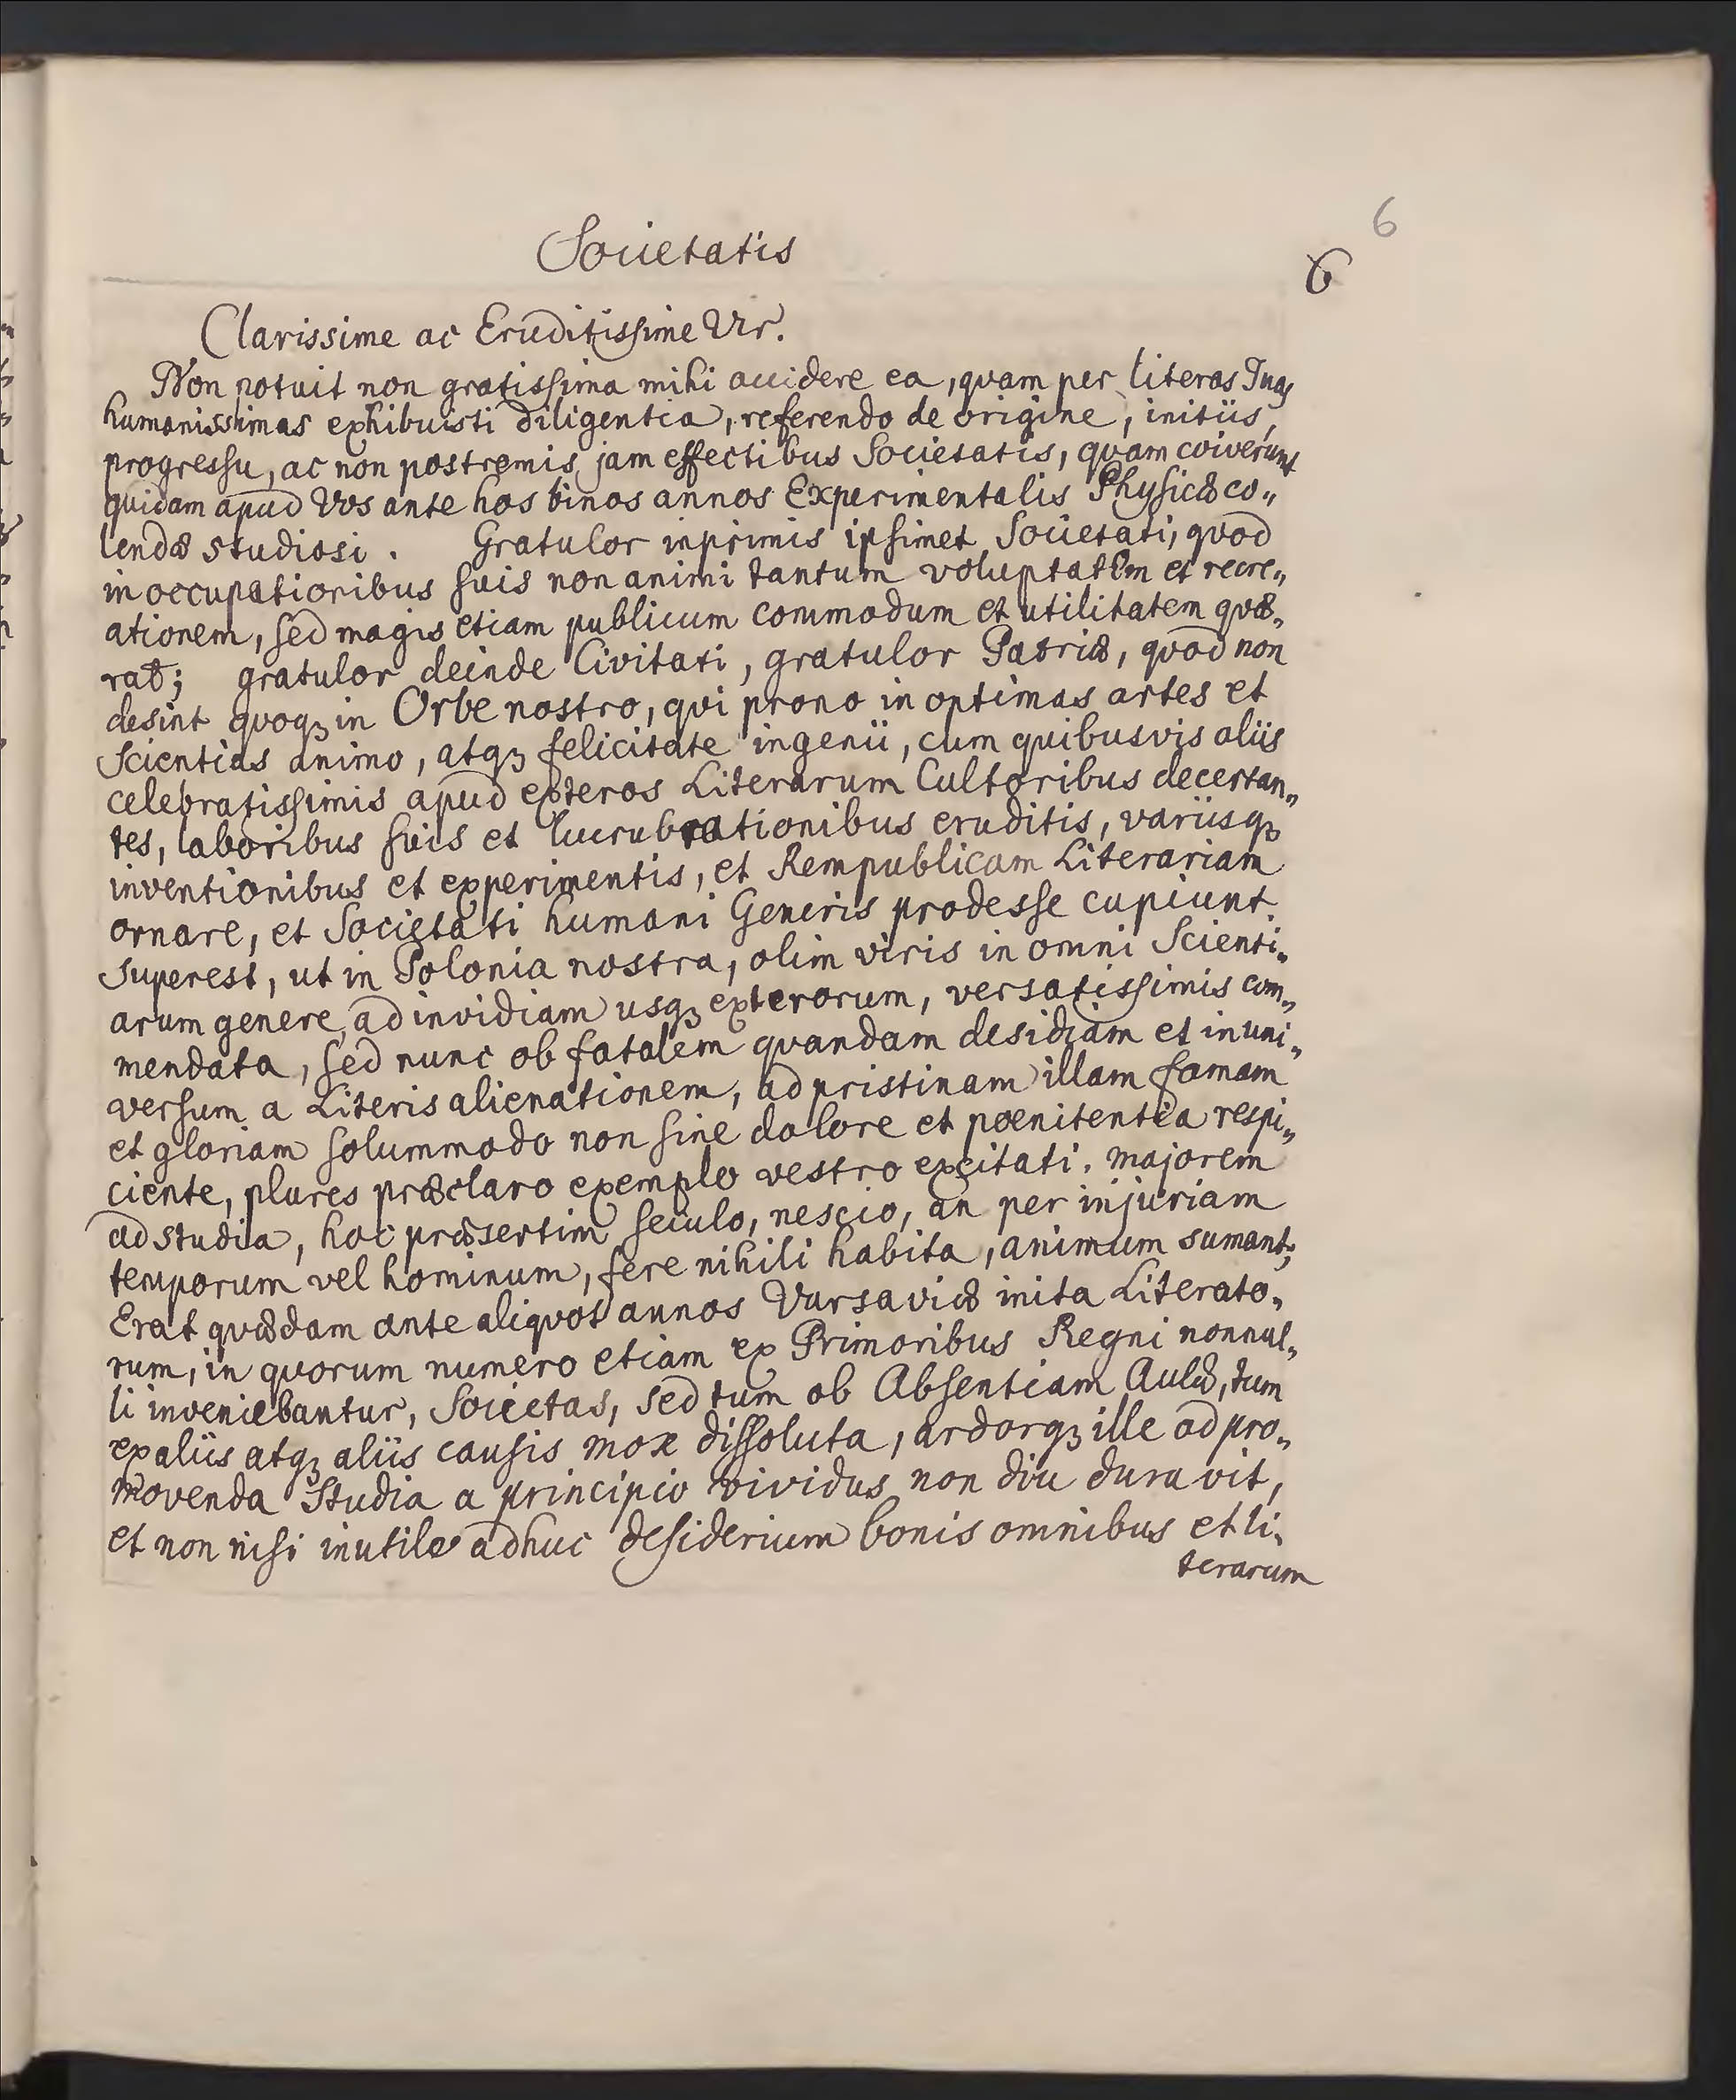 6
Societatis
6
Clarissime ac Eruditissime Vir.
Non potuit non gratissima mihi accidere ea, quam per literas Tuas
humanissimas exhibuisti diligentia, referendo de origine, initiis,
progressu, ac non postremis jam effectibus Societatis, quam coiverunt
quidam apud Vos ante hos binos annos Experimentalis Physicæ co„
lendæ studiosi. Gratulor inprimis ipsimet Societati, quod
in occupationibus suis non animi tantum voluptatem et recre„
ationem, sed magis etiam publicum commodum et utilitatem quæ„
rat; gratulor deinde Civitati, gratulor Patriæ, quod non
desint quoqꝫ in Orbe nostro, qui prono in optimas artes et
Scientias animo, atqꝫ felicitate ingenii, cum quibusvis aliis
celebratissimis apud exteros Literarum Cultoribus decertan„
tes, laboribus suis et lucubrationibus eruditis, variisqꝫ
inventionibus et experimentis, et Rempublicam Literariam
ornare, et Societati humani Generis prodesse cupiunt.
Superest, ut in Polonia nostra, olim viris in omni Scienti„
arum genere, ad invidiam usqꝫ exterorum, versatissimis com„
mendata, sed nunc ob fatalem quandam desidiam et in uni„
versum a Literis alienationem, ad pristinam illam famam
et gloriam solummodo non sine dolore et pœnitentia respi„
ciente, plures præclaro exemplo vestro excitati, majorem
ad studia, hoc præsertim seculo, nescio, an per injuriam
temporum vel hominum, fere nihili habita, animum sumant;
Erat quædam ante aliquot annos Varsaviæ inita Literato„
rum, in quorum numero etiam ex Primoribus Regni nonnul„
li inveniebantur, Societas, sed tum ob Absentiam Aulæ, tum
ex aliis atqꝫ aliis causis mox dissoluta, ardorqꝫ ille ad pro„
movenda Studia a principio vividus non diu duravit,
et non nisi inutile adhuc desiderium bonis omnibus et li„
terarum